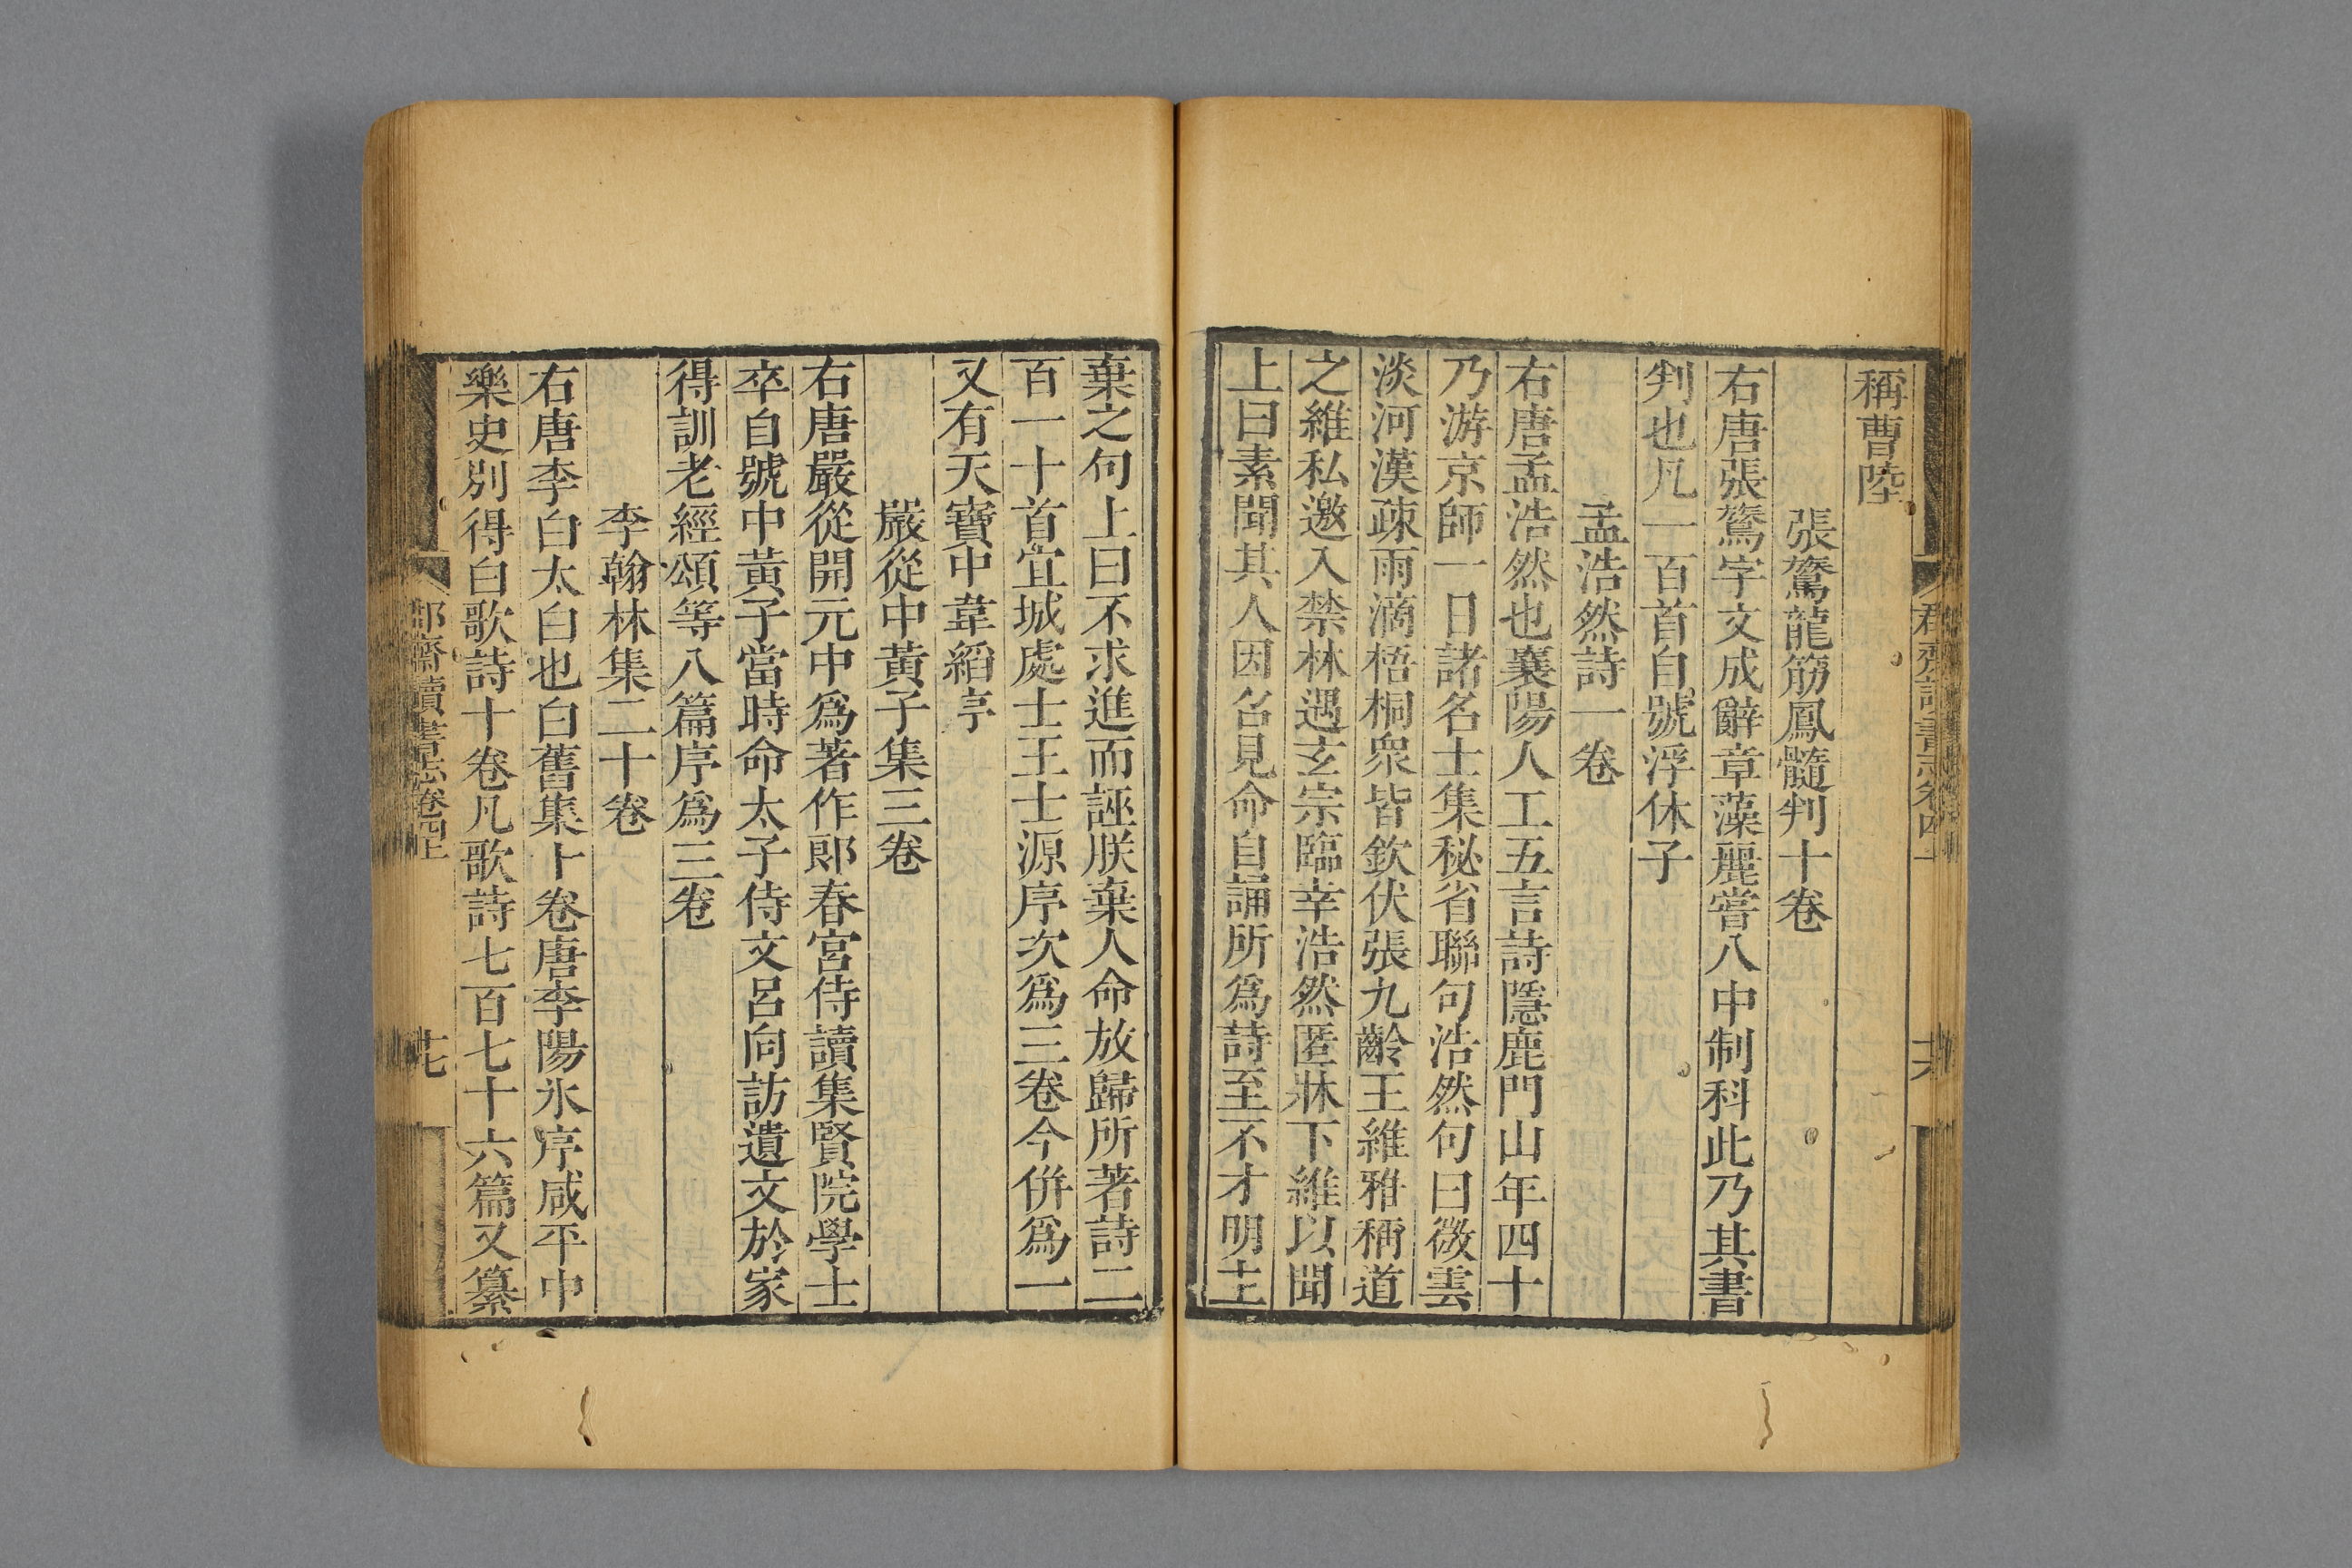 稱曹陸
張鷟龍筋鳳髓判十卷
右唐張鷟字文成辭章藻麗嘗八中制科此乃其書
判也凡一百首自號浮休子
孟浩然詩一卷
右唐孟浩然也襄陽人工五言詩隱鹿門山年四十
乃游京師一日諸名士集秘省聯句浩然句曰微雲
淡河漢疎雨滴梧桐衆皆欽伏張九齡王維雅稱道
之維私邀入禁林遇玄宗臨幸浩然匿牀下維以聞
上曰素聞其人因召見命自誦所爲詩至不才明主
棄之句上曰不求進而誣朕棄人命放歸所著詩二
百一十首宜城處士王士源序次爲三卷今併爲一
又有天寶中韋縚序
嚴從中黃子集三卷
右唐嚴從開元中爲著作郎春宮侍讀集賢院學士
卒自號中黃子當時命太子侍文呂向訪遺文於家
得訓老經頌等八篇序爲三卷
李翰林集二十卷
右唐李白太白也白舊集十卷唐李陽氷序咸平中
樂史別得白歌詩十卷凡歌詩七百七十六篇又纂
郡齋讀書志卷四上